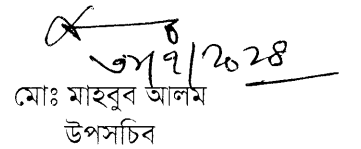 ৩১/৭/২০২৪
মোঃ মাহবুব আলম
উপসচিব